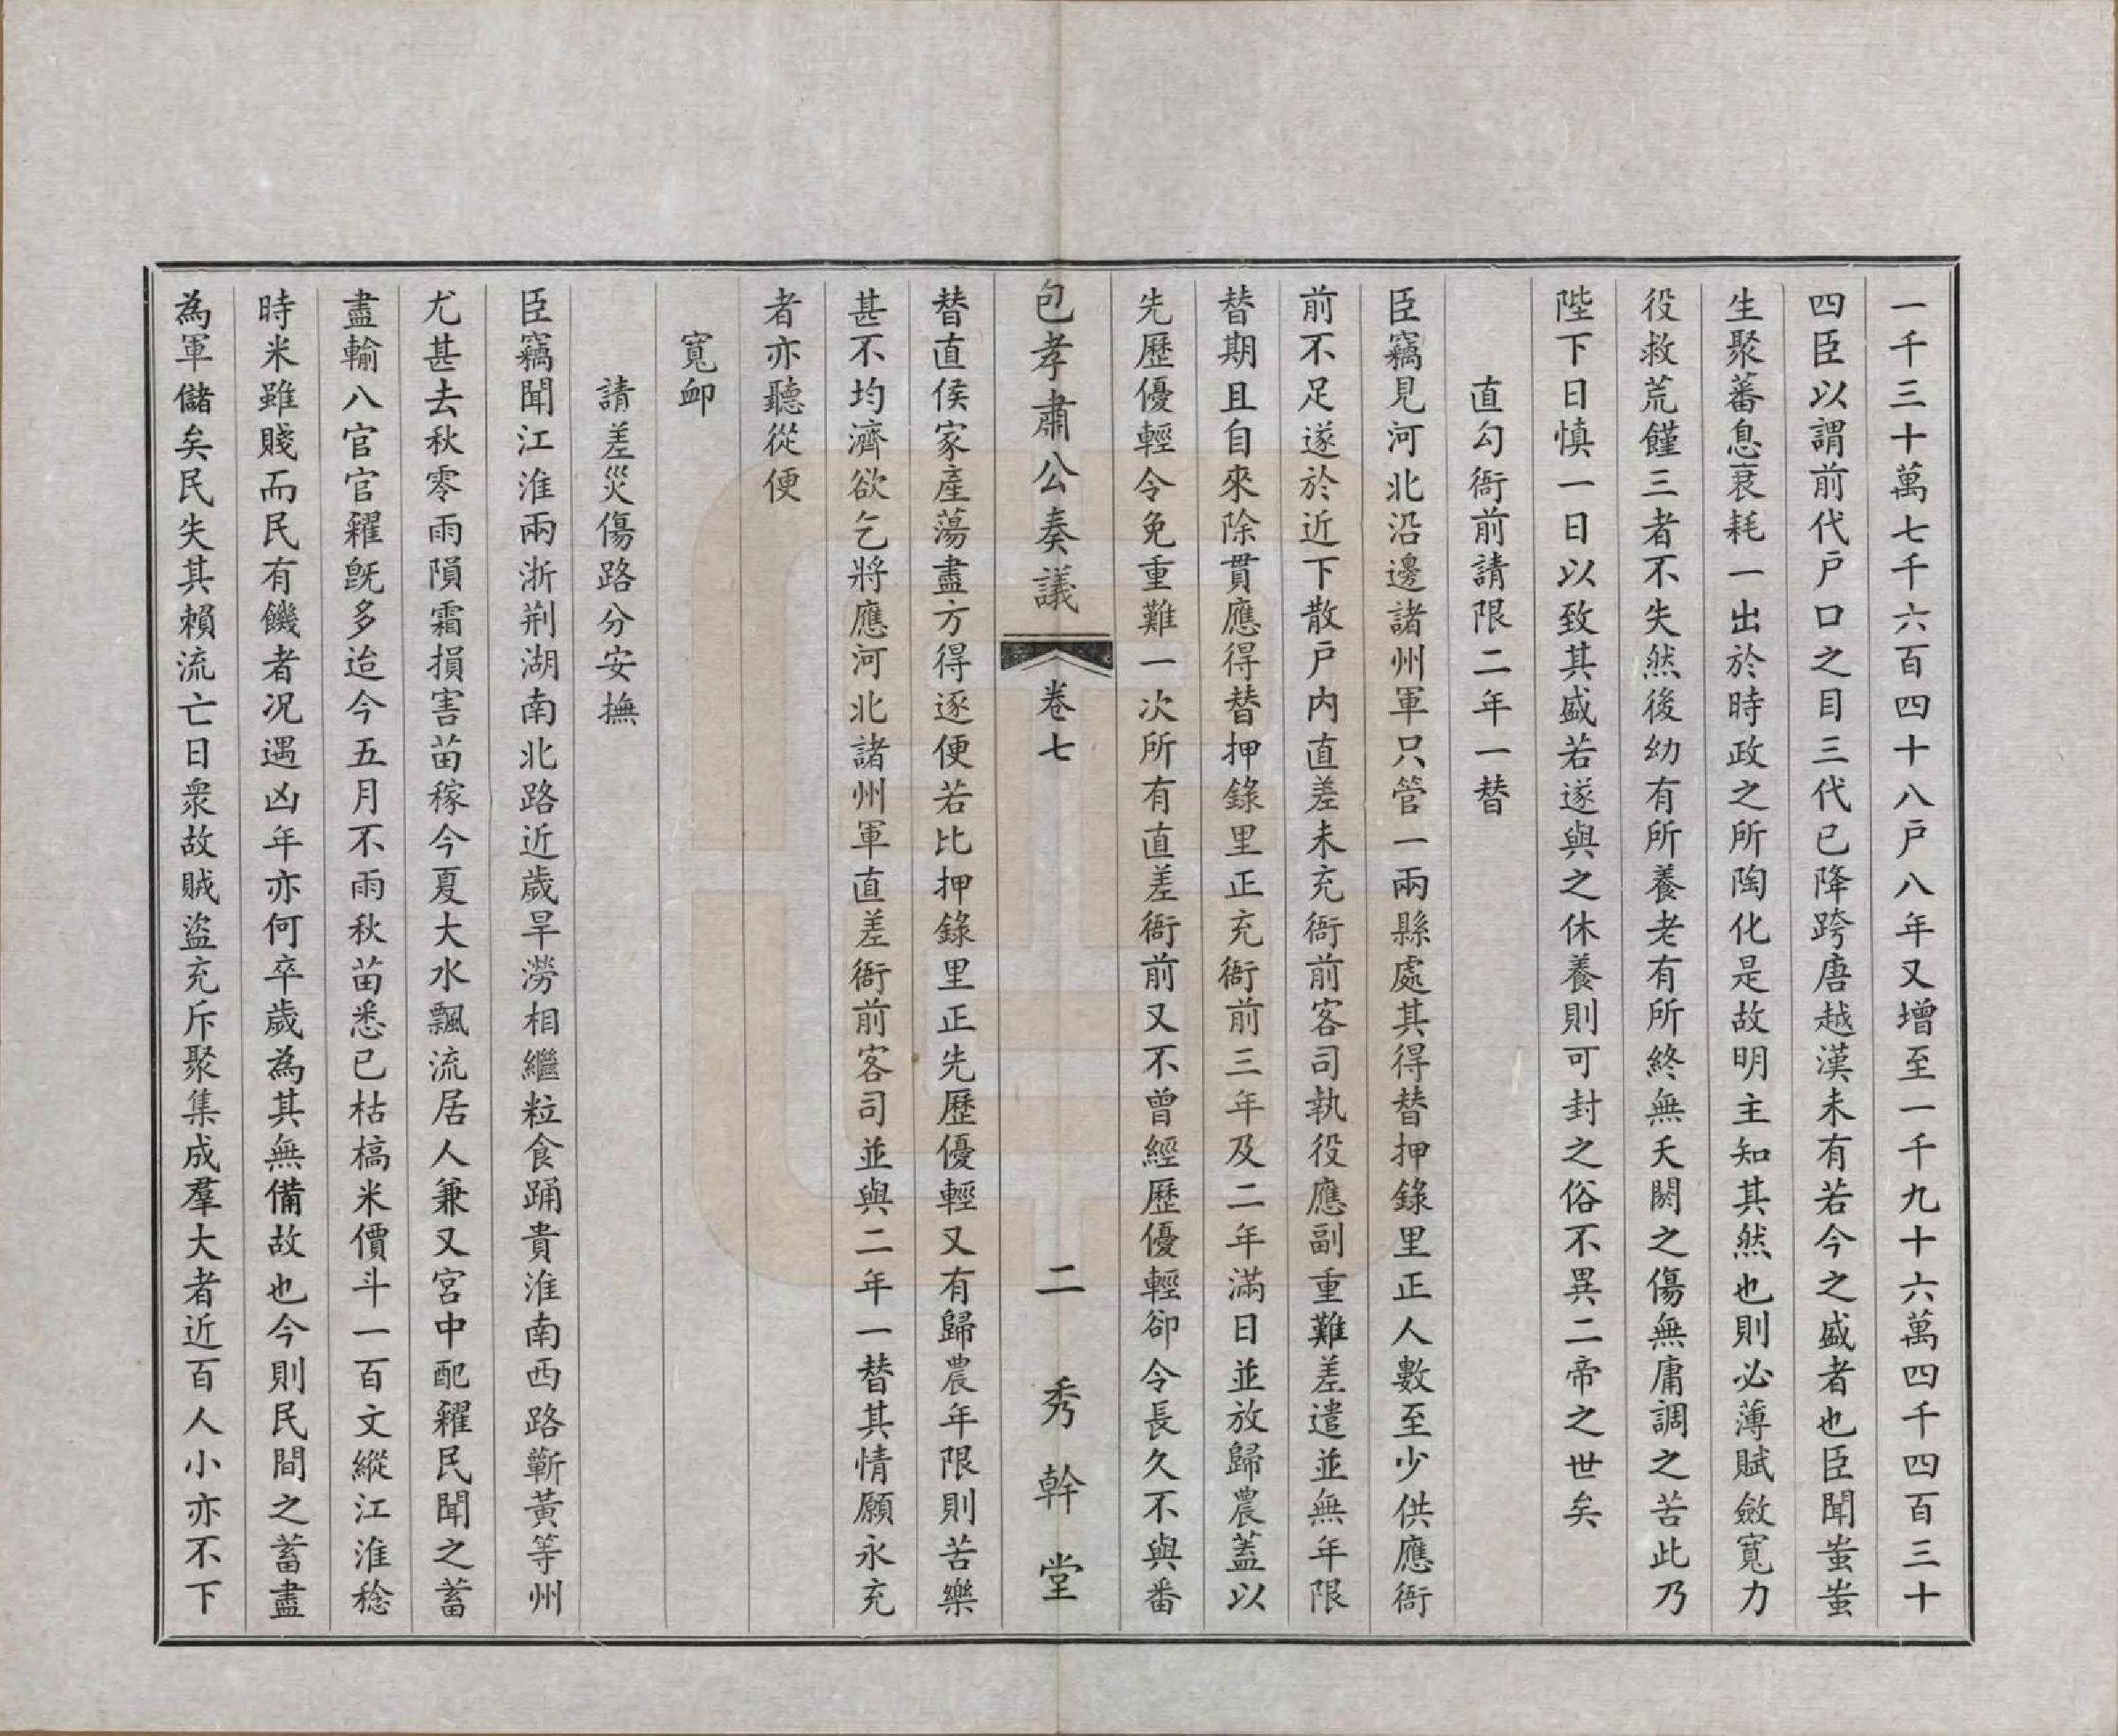 一千三十萬七千六百四十八戶八年又增至一千九十六萬四千四百三十
四臣以謂前代戶口之目三代已降跨唐越漢未有若今之盛者也臣聞蚩蚩
生聚蕃息衰耗一出於時政之所陶化是故明主知其然也則必薄賦斂寬力
役救荒饉三者不失然後幼有所養老有所終無夭閼之傷無庸調之苦此乃
陛下日慎一日以致其盛若遂與之休養則可封之俗不異二帝之世矣
直勾衙前請限二年一替
臣竊見河北沿邊諸州軍只管一兩縣處其得替押錄里正人數至少供應衙
前不足遂於近下散戶内直差未充衙前客司執役應副重難差遣並無年限
替期且自來除貫應得替押錄里正充衙前三年及二年滿日並放歸農蓋以
先歷優輕令免重難一次所有直差衙前又不曾經歷優輕卻令長久不與番
包孝肅公奏議
卷七
二
秀幹堂
替直侯家產蕩盡方得逐便若比押錄里正先歷優輕又有歸農年限則苦樂
甚不均濟欲乞將應河北諸州軍直差衙前客司並與二年一替其情願永充
者亦聽從便
寬卹
請差災傷路分安撫
臣竊聞江淮兩浙荊湖南北路近歲旱澇相繼粒食踊貴淮南西路蘄黃等州
尤甚去秋零雨隕霜損害苗稼今夏大水飄流居人兼又宮中配糴民聞之蓄
盡輸八官官糴既多迨今五月不雨秋苗悉已枯槁米價斗一百文縱江淮稔
時米雖賤而民有饑者況遇凶年亦何卒歲為其無備故也今則民間之蓄盡
為軍儲矣民失其賴流亡日衆故賊盜充斥聚集成羣大者近百人小亦不下